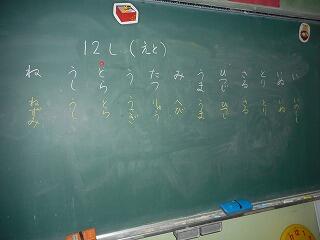 12し (えと)
ね うし とら う たつ み うま ひつじ さる とり いぬ い
ねずみ うし とら うさぎ りゅう へび うま ひつじ さる とり いぬ いのしし